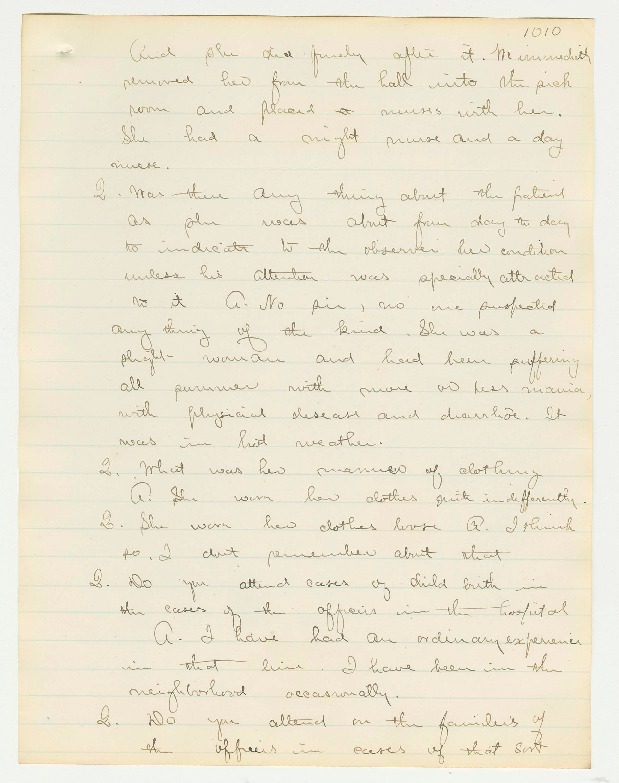 1010
And she did finely after it. We immediately
removed her from the hall into the sick
room and placed nurses with her.
She had a night nurse and a day
nurse.
Q. Was there any thing about the patient
as she was about from day to day
to indicate to the observer her condition
unless his attention was specially attracted
to it A. No sir, no one suspected
any thing of the kind. She was a
slight woman and had been suffering
all summer with more or less mania,
with physical disease and diarrhoe. It
was in hot weather.
Q. What was her manner of clothing
A. She worn her clothes quite indifferently.
Q. She worn her clothes loose A. I think
so. I dont remember about that
Q. Do you attend cases of child birth in
the cases of the officers in the hospital
A. I have had an ordinary experience
in that line. I have been in the
neighborhood occasionally.
Q. Do you attend on the families of
the officers in cases of that sort